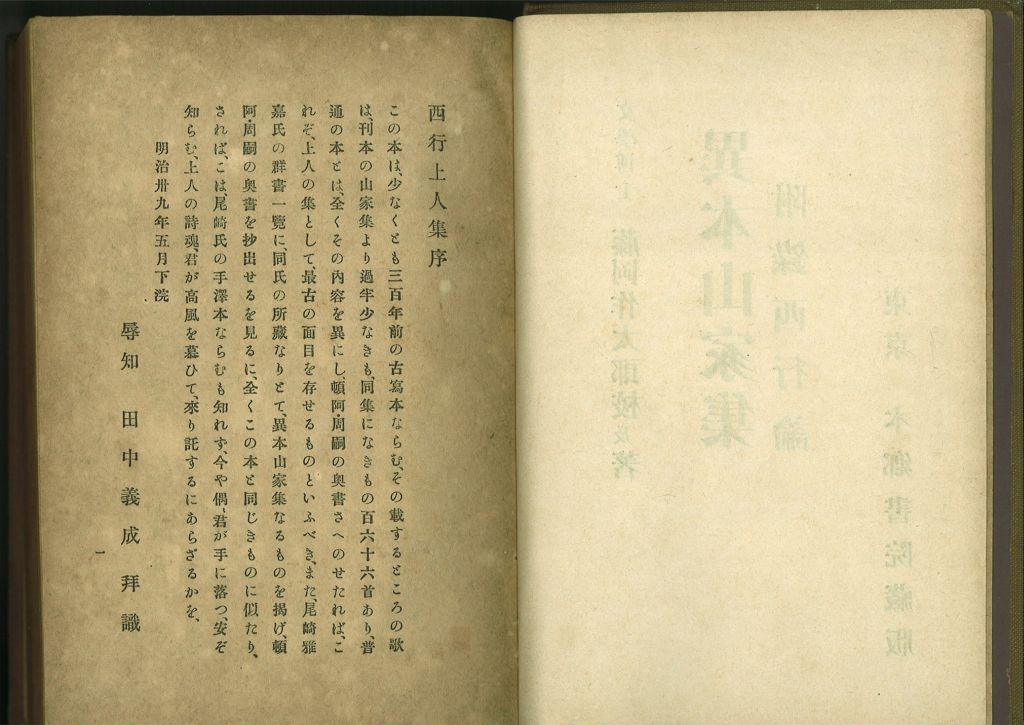 西行上人集序
この本は、少なくとも三百年前の古寫本ならむ、その載するところの歌
は、刊本の山家集より過半少なきも、同集になきもの百六十六首あり、普
通の本とは、全くその内容を異にし、頓阿・周嗣の奥書さへのせたれば、こ
れぞ、上人の集として、最古の面目を存せるものといふべき、また、尾崎雅
嘉氏の群書一覽に、同氏の所藏なりとて、異本山家集なるものを揭げ、頓
阿・周嗣の奥書を抄出せるを見るに、全くこの本と同じきものに似たり、
されば、こは、尾崎氏の手澤本ならむも知れず、今や偶、君が手に落つ、安ぞ
知らむ、上人の詩魂、君が高風を慕ひて、來り託するにあらざるかを、
明治卅九年五月下浣
辱知 田中義成拜識
一
異本山家集
附錄西行論
藤岡作太郎校及著
東京 本鄕書院藏版